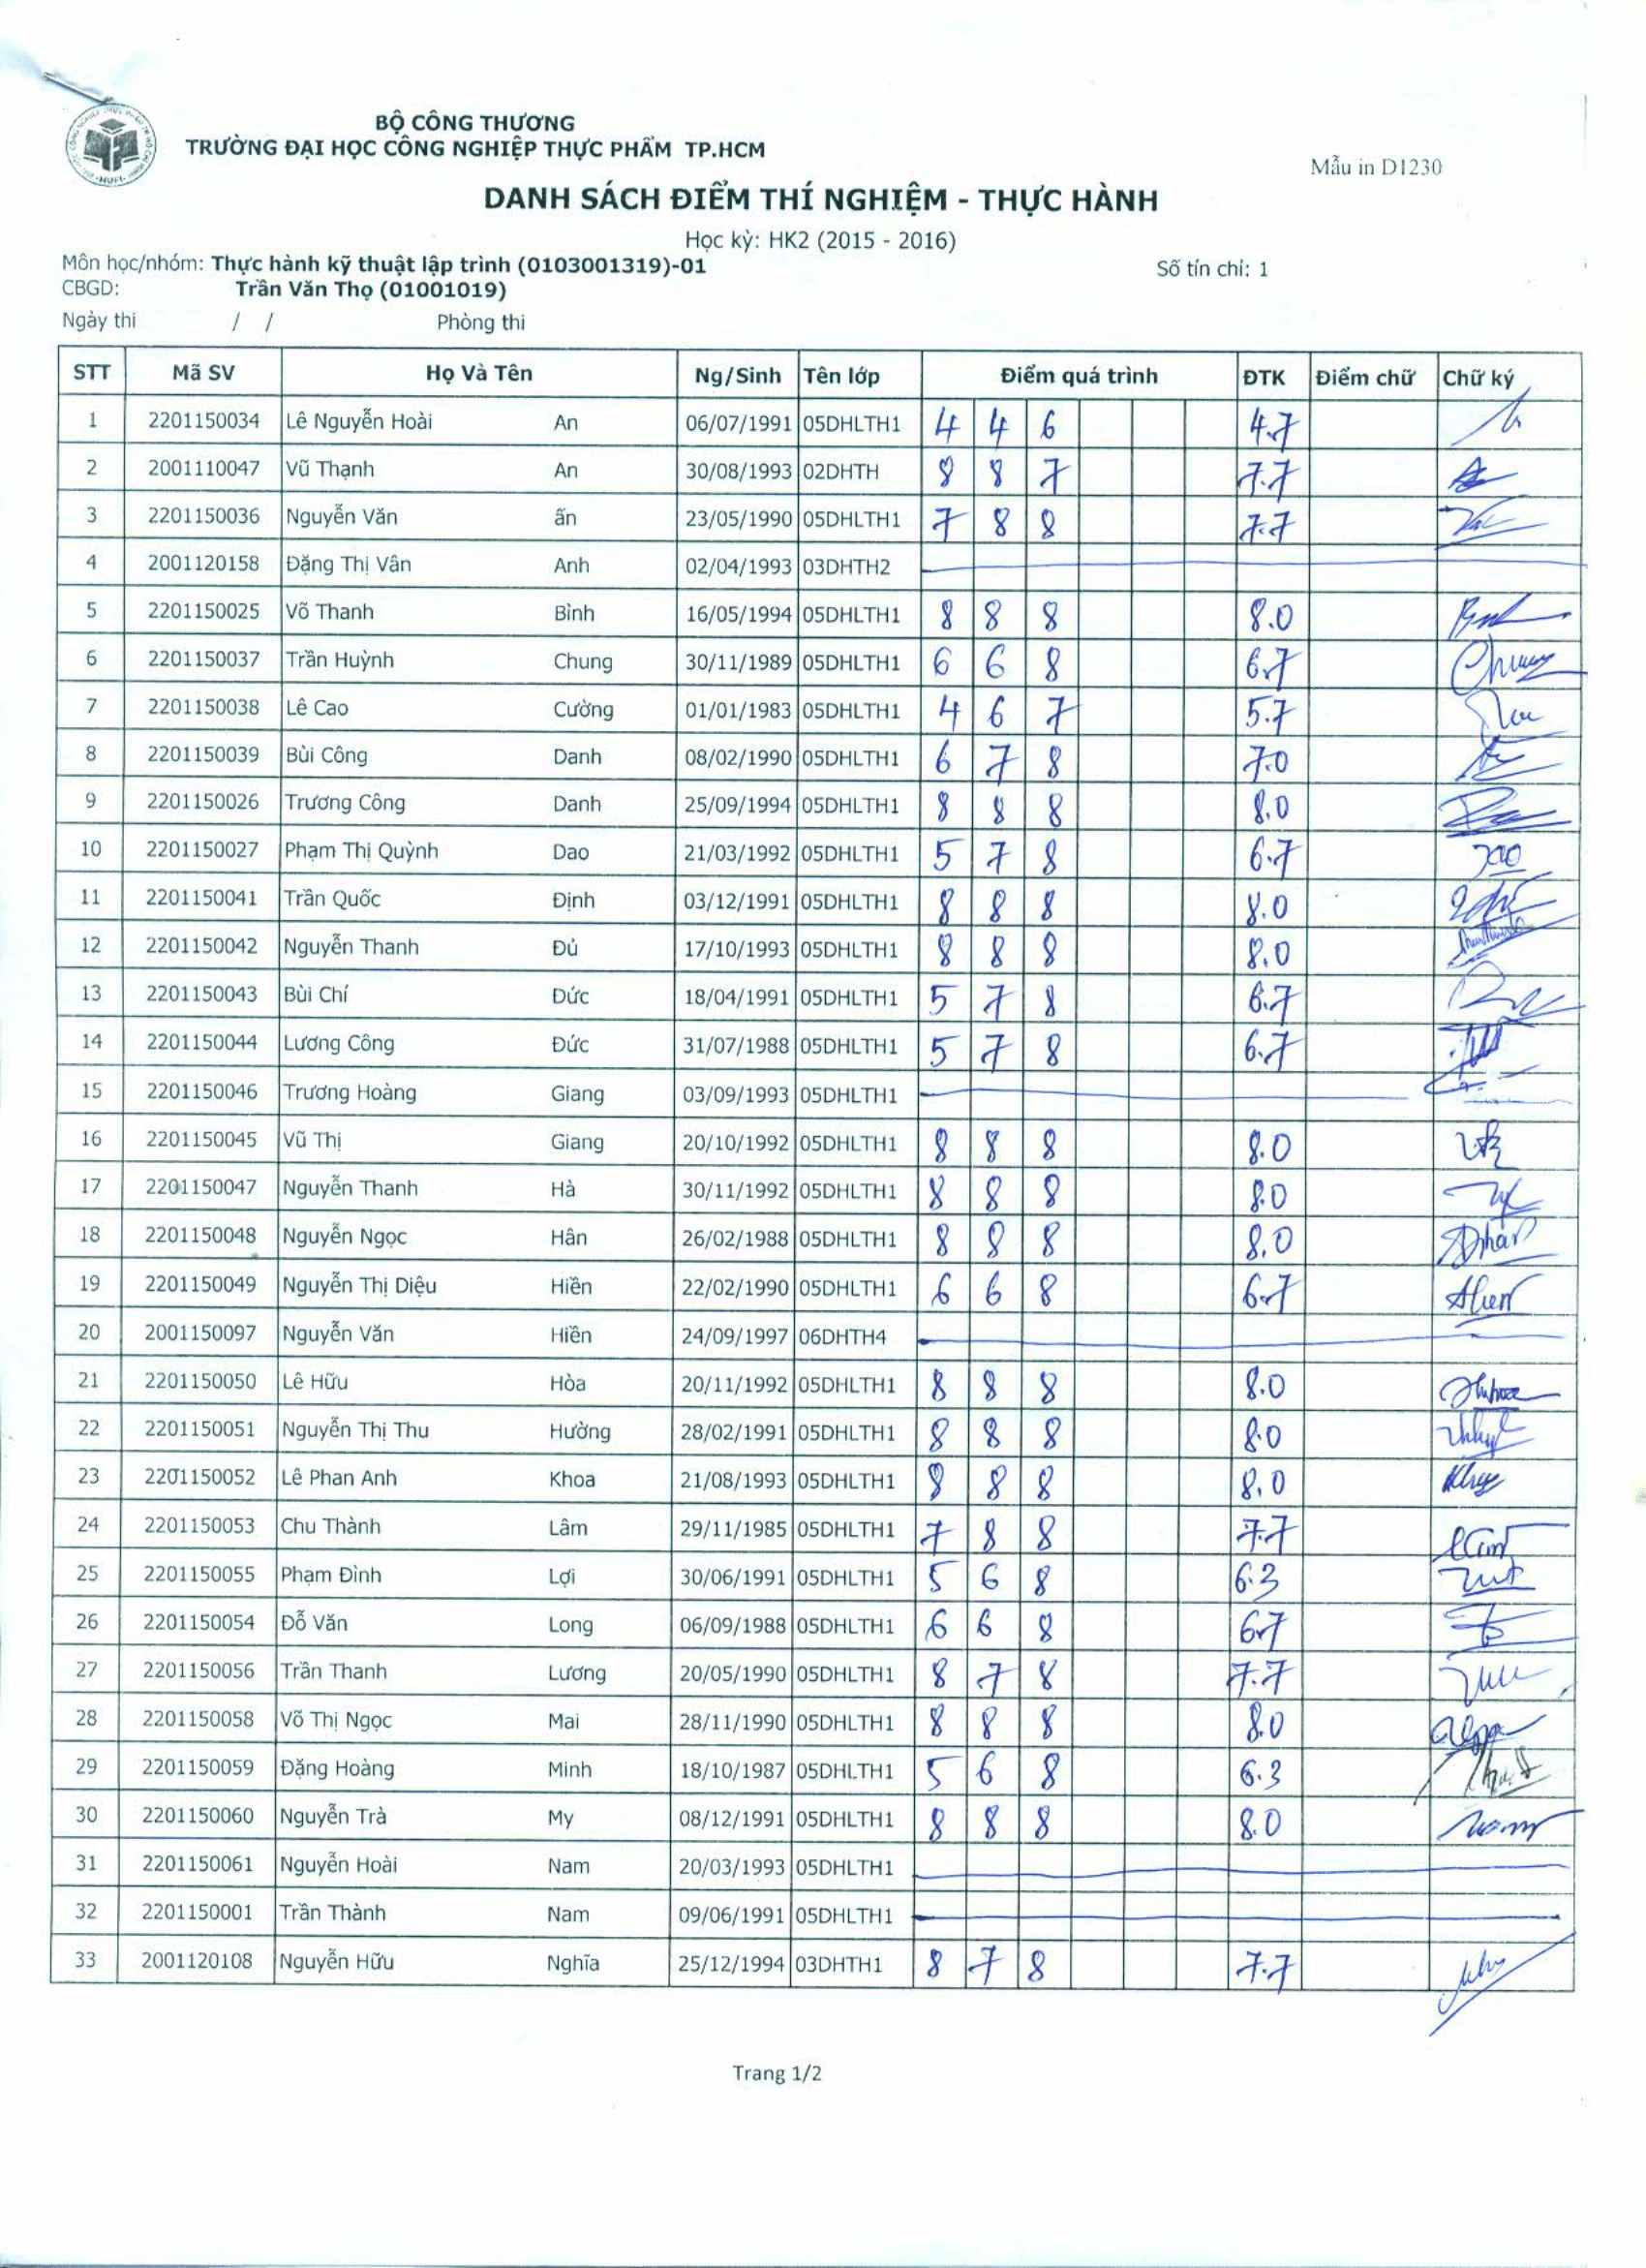 BỘ CÔNG THƯƠNG
TRƯỜNG ĐẠI HỌC CÔNG NGHIỆP THỰC PHẨM TP.HCM
Mẫu in D1230
DANH SÁCH ĐIỂM THÍ NGHIỆM - THỰC HÀNH
Học kỳ: HK2 (2015 - 2016)
Môn học/nhóm: Thực hành kỹ thuật lập trình (0103001319)-01 Số tín chỉ: 1
CBGD: Trần Văn Thọ (01001019)
Ngày thi / / Phòng thi
STT Mã SV Họ Và Tên Ng/Sinh Tên lớp Điểm quá trình ĐTK Điểm chữ Chữ ký
1 2201150034 Lê Nguyễn Hoài An 06/07/1991 05DHLTH1 4 4 6 4.7
2 2001110047 Vũ Thạnh An 30/08/1993 02DHTH 8 8 7 7.7
3 2201150036 Nguyễn Văn ấn 23/05/1990 05DHLTH1 7 8 8 7.7
4 2001120158 Đặng Thị Vân Anh 02/04/1993 03DHTH2
5 2201150025 Võ Thanh Bình 16/05/1994 05DHLTH1 8 8 8 8.0
6 2201150037 Trần Huỳnh Chung 30/11/1989 05DHLTH1 6 6 8 6.7 Chung
7 2201150038 Lê Cao Cường 01/01/1983 05DHLTH1 4 6 7 5.7
8 2201150039 Bùi Công Danh 08/02/1990 05DHLTH1 6 7 8 7.0
9 2201150026 Trương Công Danh 25/09/1994 05DHLTH1 8 8 8 8.0
10 2201150027 Phạm Thị Quỳnh Dao 21/03/1992 05DHLTH1 5 7 8 6.7
11 2201150041 Trần Quốc Định 03/12/1991 05DHLTH1 8 8 8 8.0
12 2201150042 Nguyễn Thanh Đủ 17/10/1993 05DHLTH1 8 8 8 8.0
13 2201150043 Bùi Chí Đức 18/04/1991 05DHLTH1 5 7 8 6.7
14 2201150044 Lương Công Đức 31/07/1988 05DHLTH1 5 7 8 6.7
15 2201150046 Trương Hoàng Giang 03/09/1993 05DHLTH1
16 2201150045 Vũ Thị Giang 20/10/1992 05DHLTH1 8 8 8 8.0
17 2201150047 Nguyễn Thanh Hà 30/11/1992 05DHLTH1 8 8 8 8.0
18 2201150048 Nguyễn Ngọc Hân 26/02/1988 05DHLTH1 8 8 8 8.0
19 2201150049 Nguyễn Thị Diệu Hiền 22/02/1990 05DHLTH1 6 6 8 6.7
20 2001150097 Nguyễn Văn Hiền 24/09/1997 06DHTH4
21 2201150050 Lê Hữu Hòa 20/11/1992 05DHLTH1 8 8 8 8.0
22 2201150051 Nguyễn Thị Thu Hường 28/02/1991 05DHLTH1 8 8 8 8.0
23 2201150052 Lê Phan Anh Khoa 21/08/1993 05DHLTH1 8 8 8 8.0
24 2201150053 Chu Thành Lâm 29/11/1985 05DHLTH1 7 8 8 7.7
25 2201150055 Phạm Đình Lợi 30/06/1991 05DHLTH1 5 6 8 6.3
26 2201150054 Đỗ Văn Long 06/09/1988 05DHLTH1 6 6 8 6.7
27 2201150056 Trần Thanh Lương 20/05/1990 05DHLTH1 8 7 8 7.7
28 2201150058 Võ Thị Ngọc Mai 28/11/1990 05DHLTH1 8 8 8 8.0
29 2201150059 Đặng Hoàng Minh 18/10/1987 05DHLTH1 5 6 8 6.3
30 2201150060 Nguyễn Trà My 08/12/1991 05DHLTH1 8 8 8 8.0
31 2201150061 Nguyễn Hoài Nam 20/03/1993 05DHLTH1
32 2201150001 Trần Thành Nam 09/06/1991 05DHLTH1
33 2001120108 Nguyễn Hữu Nghĩa 25/12/1994 03DHTH1 8 7 8 7.7
Trang 1/2